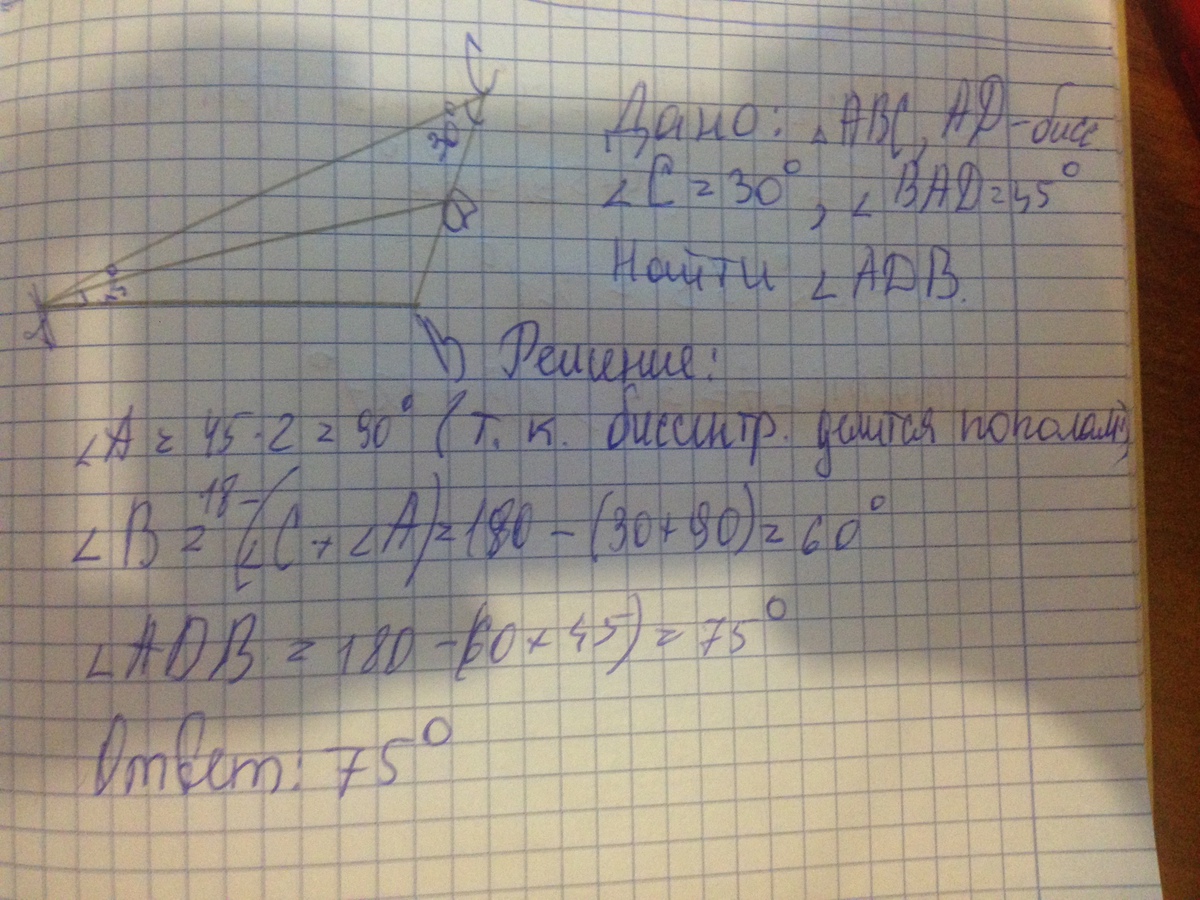 C
30°
D
45°
A
B
Дано: △ABC, AD-бисс
∠C = 30°, ∠BAD = 45°
Найти ∠ADB.
Решение:
∠A = 45·2 = 90° (т.к. биссектр. делится пополам)
∠B = 18-(∠C + ∠A) = 180 - (30+90) = 60°
∠ADB = 180 - (60 + 45) = 75°
Ответ: 75°